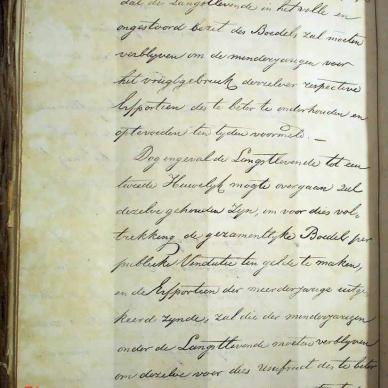 dat de Langstlevende in het volle en
ongestoord bezit des Boedels zal moeten
verblyven om de minderjarigen voor
het vrugtgebruik derzelver respective
Erfportien des te beter te onderhouden en
optevoeden ten tyden voormeld —
Dog ingeval de Langstlevende tot een
tweede Huwelyk mogte overgaan zal
dezelve gehouden zyn, om voor dies vol-
trekking de gezamentlyke Boedels per
publieke Vendutie ten gelde te maken,
en de Erfportien der meerderjarige uitge-
keerd zynde, zal die der minderjarigen
onder de Langstlevende moeten verblyven
om dezelve voor dies usufruct des te beter